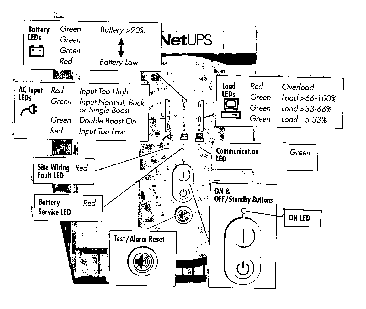 Battery LEDs
Green Battery >90%
Green
Green
Red Battery Low
NetUPS
AC Input LEDs
Red Input Too High
Green Input Normal, Buck or Single Boost
Green Double Boost On
Red Input Too Low
Load LEDs
Red Overload
Green Load >66-100%
Green Load >33-66%
Green Load ≤ 33%
Communication LED
Green
Site Wiring Fault LED Red
Battery Service LED Red
ON & OFF/Standby Buttons
ON LED
Test/Alarm Reset